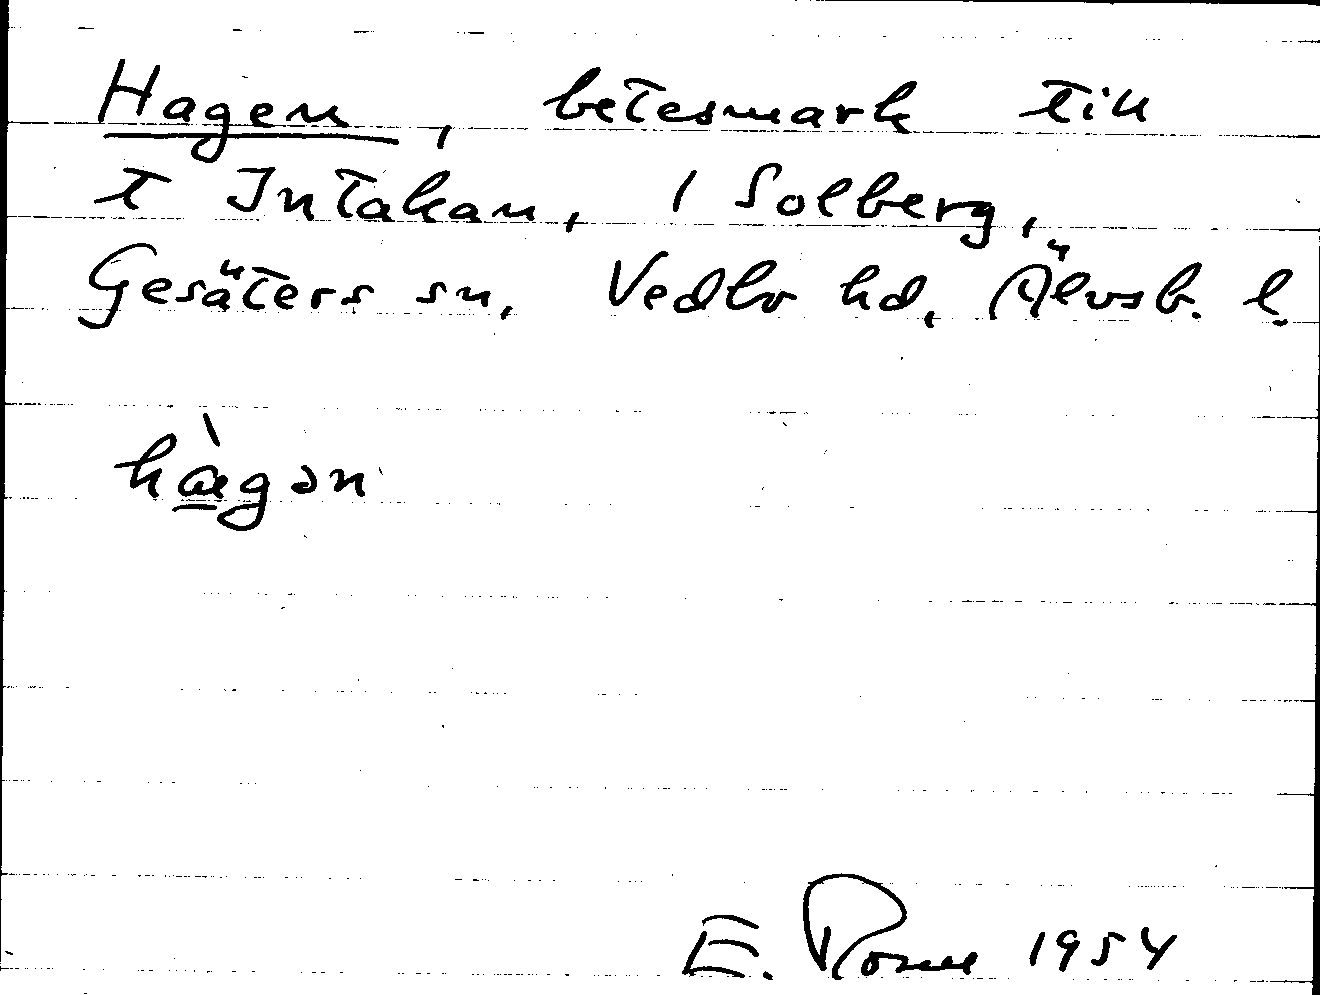 Hagen, betesmark till
t Intakan, 1 Solberg,
Gesäters sn, Vedbo hd, Älvsb. l.
hàgən
E. Rosell 1954